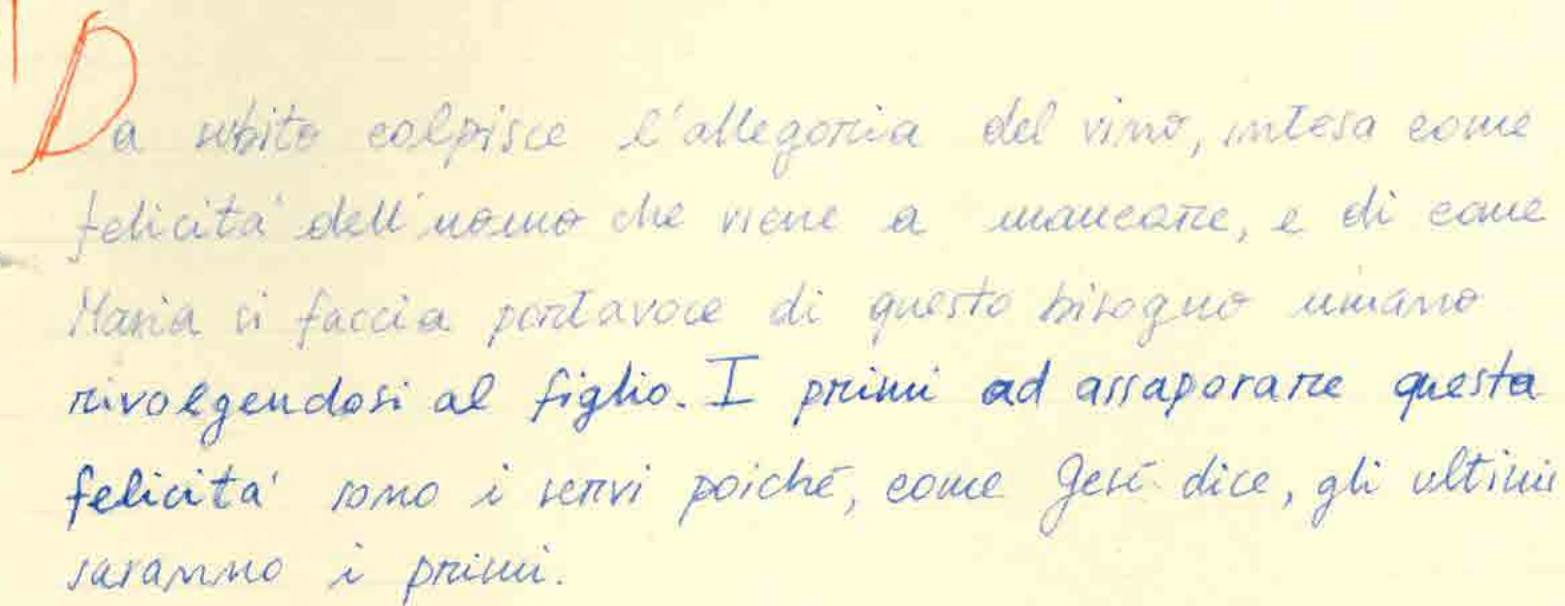 Da subito colpisce l'allegoria del vino, intesa come
felicita' dell'uomo che viene a mancare, e di come
Maria si faccia portavoce di questo bisogno umano
rivolgendosi al figlio. I primi ad assaporare questa
felicita' sono i servi poiché, come Gesù dice, gli ultimi
saranno i primi.